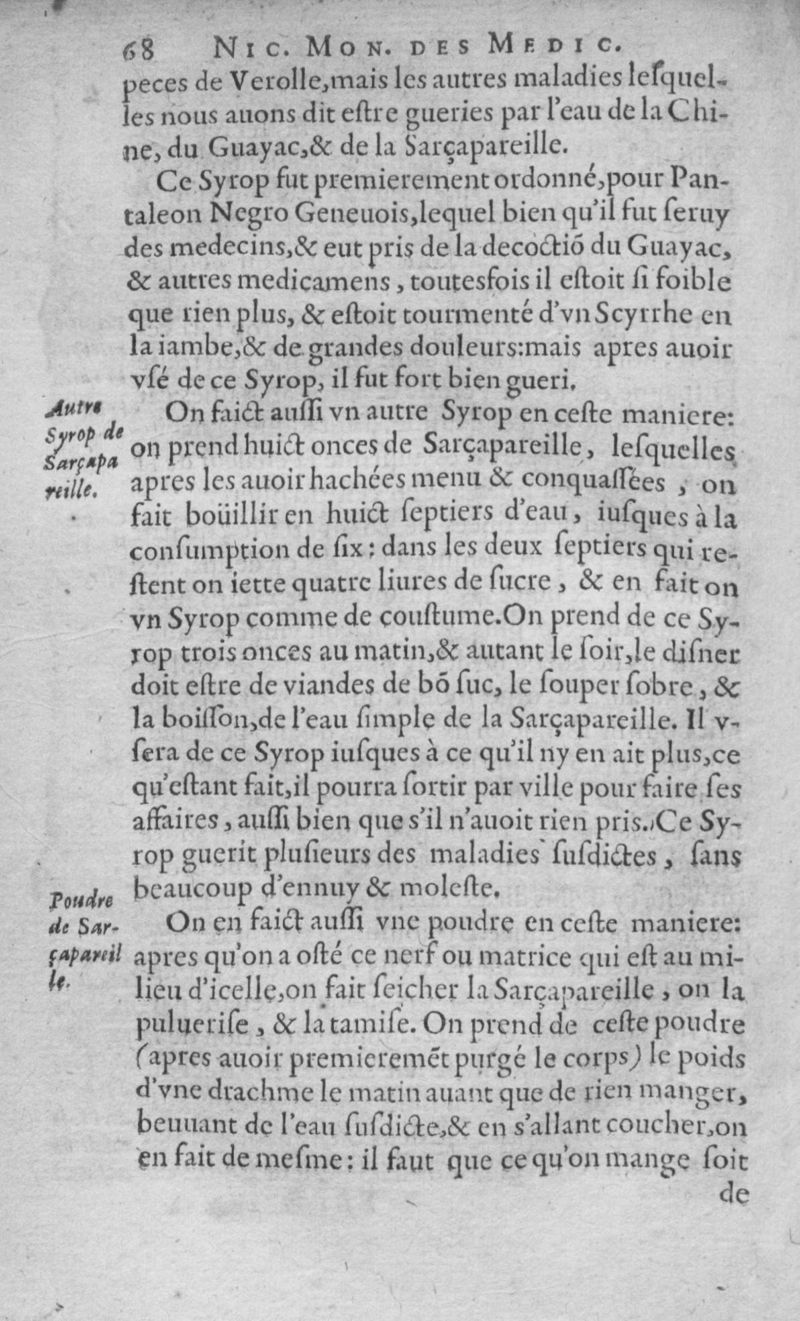 68 NIC. MON. DES MEDIC.
peces de Verolle,mais les autres maladies leſquel-
les nous auons dit eſtre gueries par l'eau de la Chi-
ne, du Guayac,& de la Sarçapareille.
Ce Syrop fut premierement ordonné,pour Pan-
taleon Negro Geneuois,lequel bien qu'il fut ſeruy
des medecins,& eut pris de la decoctiõ du Guayac,
& autres medicamens , toutesfois il eſtoit ſi foible
que rien plus, & eſtoit tourmenté d'vn Scyrrhe en
la iambe,& de grandes douleurs:mais apres auoir
vſé de ce Syrop, il fut fort bien gueri.
Autre
Syrop de
Sarçapa
reille.
On faict auſſi vn autre Syrop en ceſte maniere:
on prend huict onces de Sarçapareille, leſquelles
apres les auoir hachées menu & conquaſſées , on
fait boüillir en huict ſeptiers d'eau, iuſques à la
conſumption de ſix : dans les deux ſeptiers qui re-
ſtent on iette quatre liures de ſucre , & en fait on
vn Syrop comme de couſtume.On prend de ce Sy-
rop trois onces au matin,& autant le ſoir,le diſner
doit eſtre de viandes de bõ ſuc, le ſouper ſobre , &
la boiſſon,de l'eau ſimple de la Sarçapareille. Il v-
ſera de ce Syrop iuſques à ce qu'il ny en ait plus,ce
qu'eſtant fait,il pourra ſortir par ville pour faire ſes
affaires , auſſi bien que s'il n'auoit rien pris. Ce Sy-
rop guerit pluſieurs des maladies ſuſdictes , ſans
beaucoup d'ennuy & moleſte.
Poudre
de Sar-
çapareil
le.
On en faict auſſi vne poudre en ceſte maniere:
apres qu'on a oſté ce nerf ou matrice qui eſt au mi-
lieu d'icelle,on fait ſeicher la Sarçapareille , on la
pulueriſe , & la tamiſe. On prend de ceſte poudre
(apres auoir premieremẽt purgé le corps) le poids
d'vne drachme le matin auant que de rien manger,
beuuant de l'eau ſuſdicte,& en s'allant coucher,on
en fait de meſme : il faut que ce qu'on mange ſoit
de